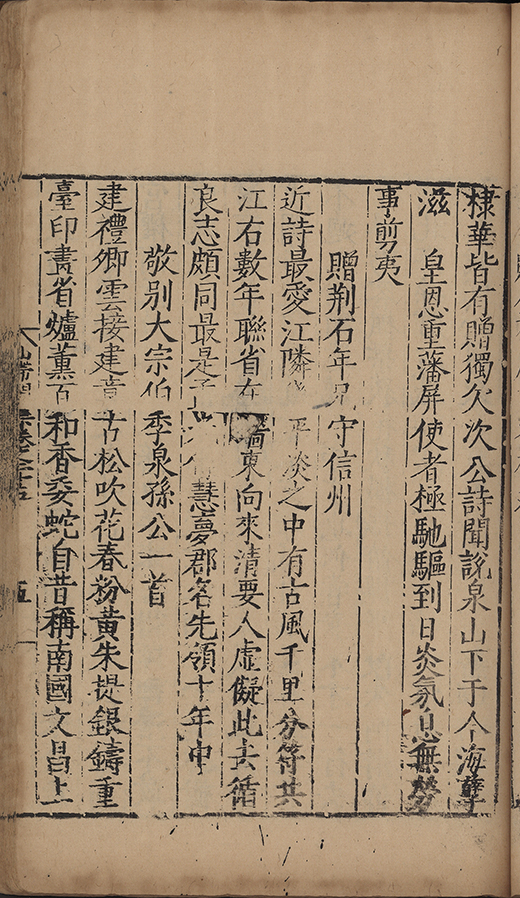 棣華皆有贈獨欠次公詩聞說泉山下于今海孽
滋　皇恩重藩屏使者極馳驅到日炎氛息無勞
事剪夷
贈荆石年兄守信州
近詩最愛江隣　平淡之中有古風千里分符共
江右數年聯省在　東向來清要人虛儗此去循
良志頗同最是　慧夢郡名先領十年中
敬別大宗伯季泉孫公一首
建禮卿雲接建章古松吹花春粉黃朱提銀鑄重
臺印畫省爐薰百和香委蛇自昔稱南國文昌上
五